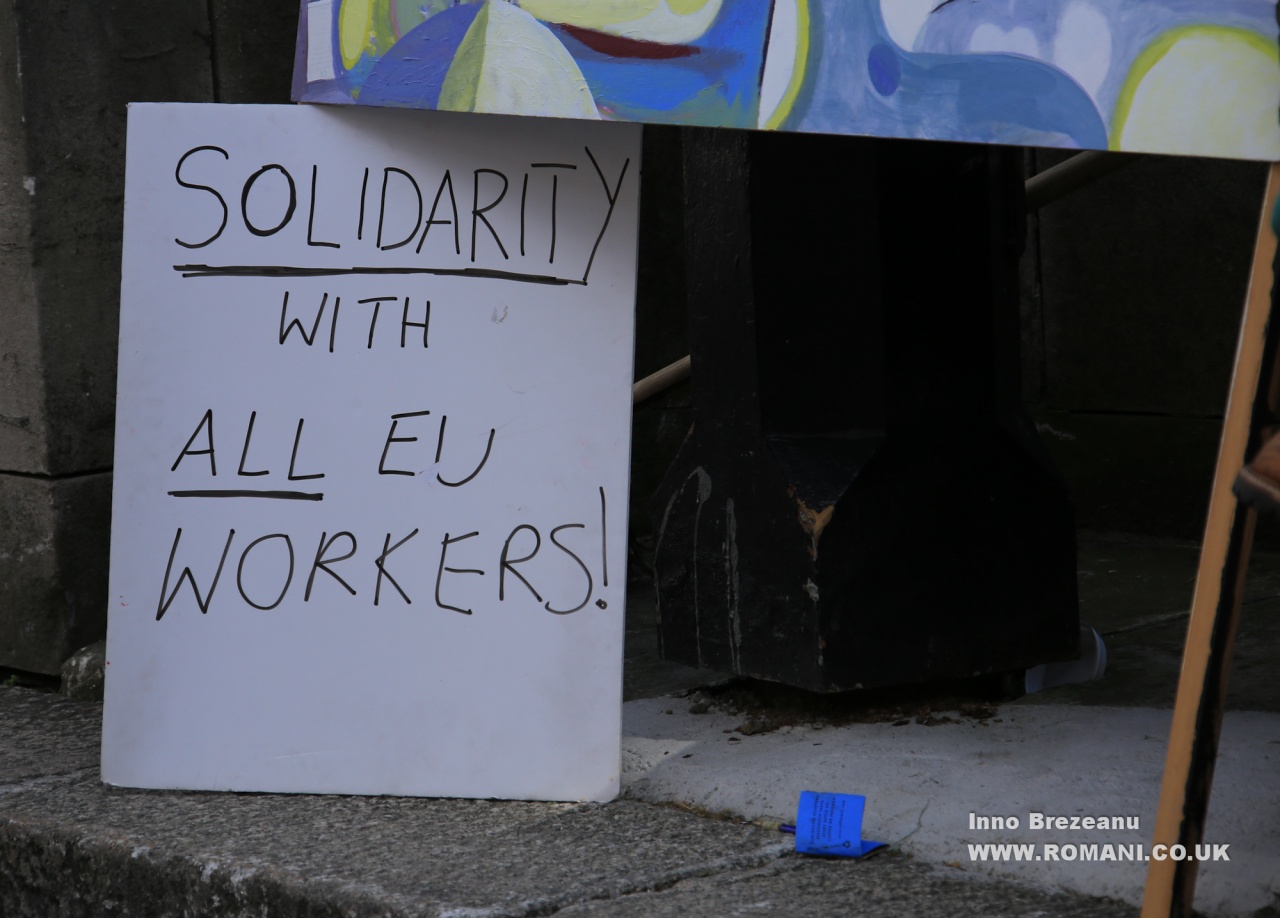 SOLIDARITY
WITH
ALL EU
WORKERS!
Inno Brezeanu
WWW.ROMANI.CO.UK